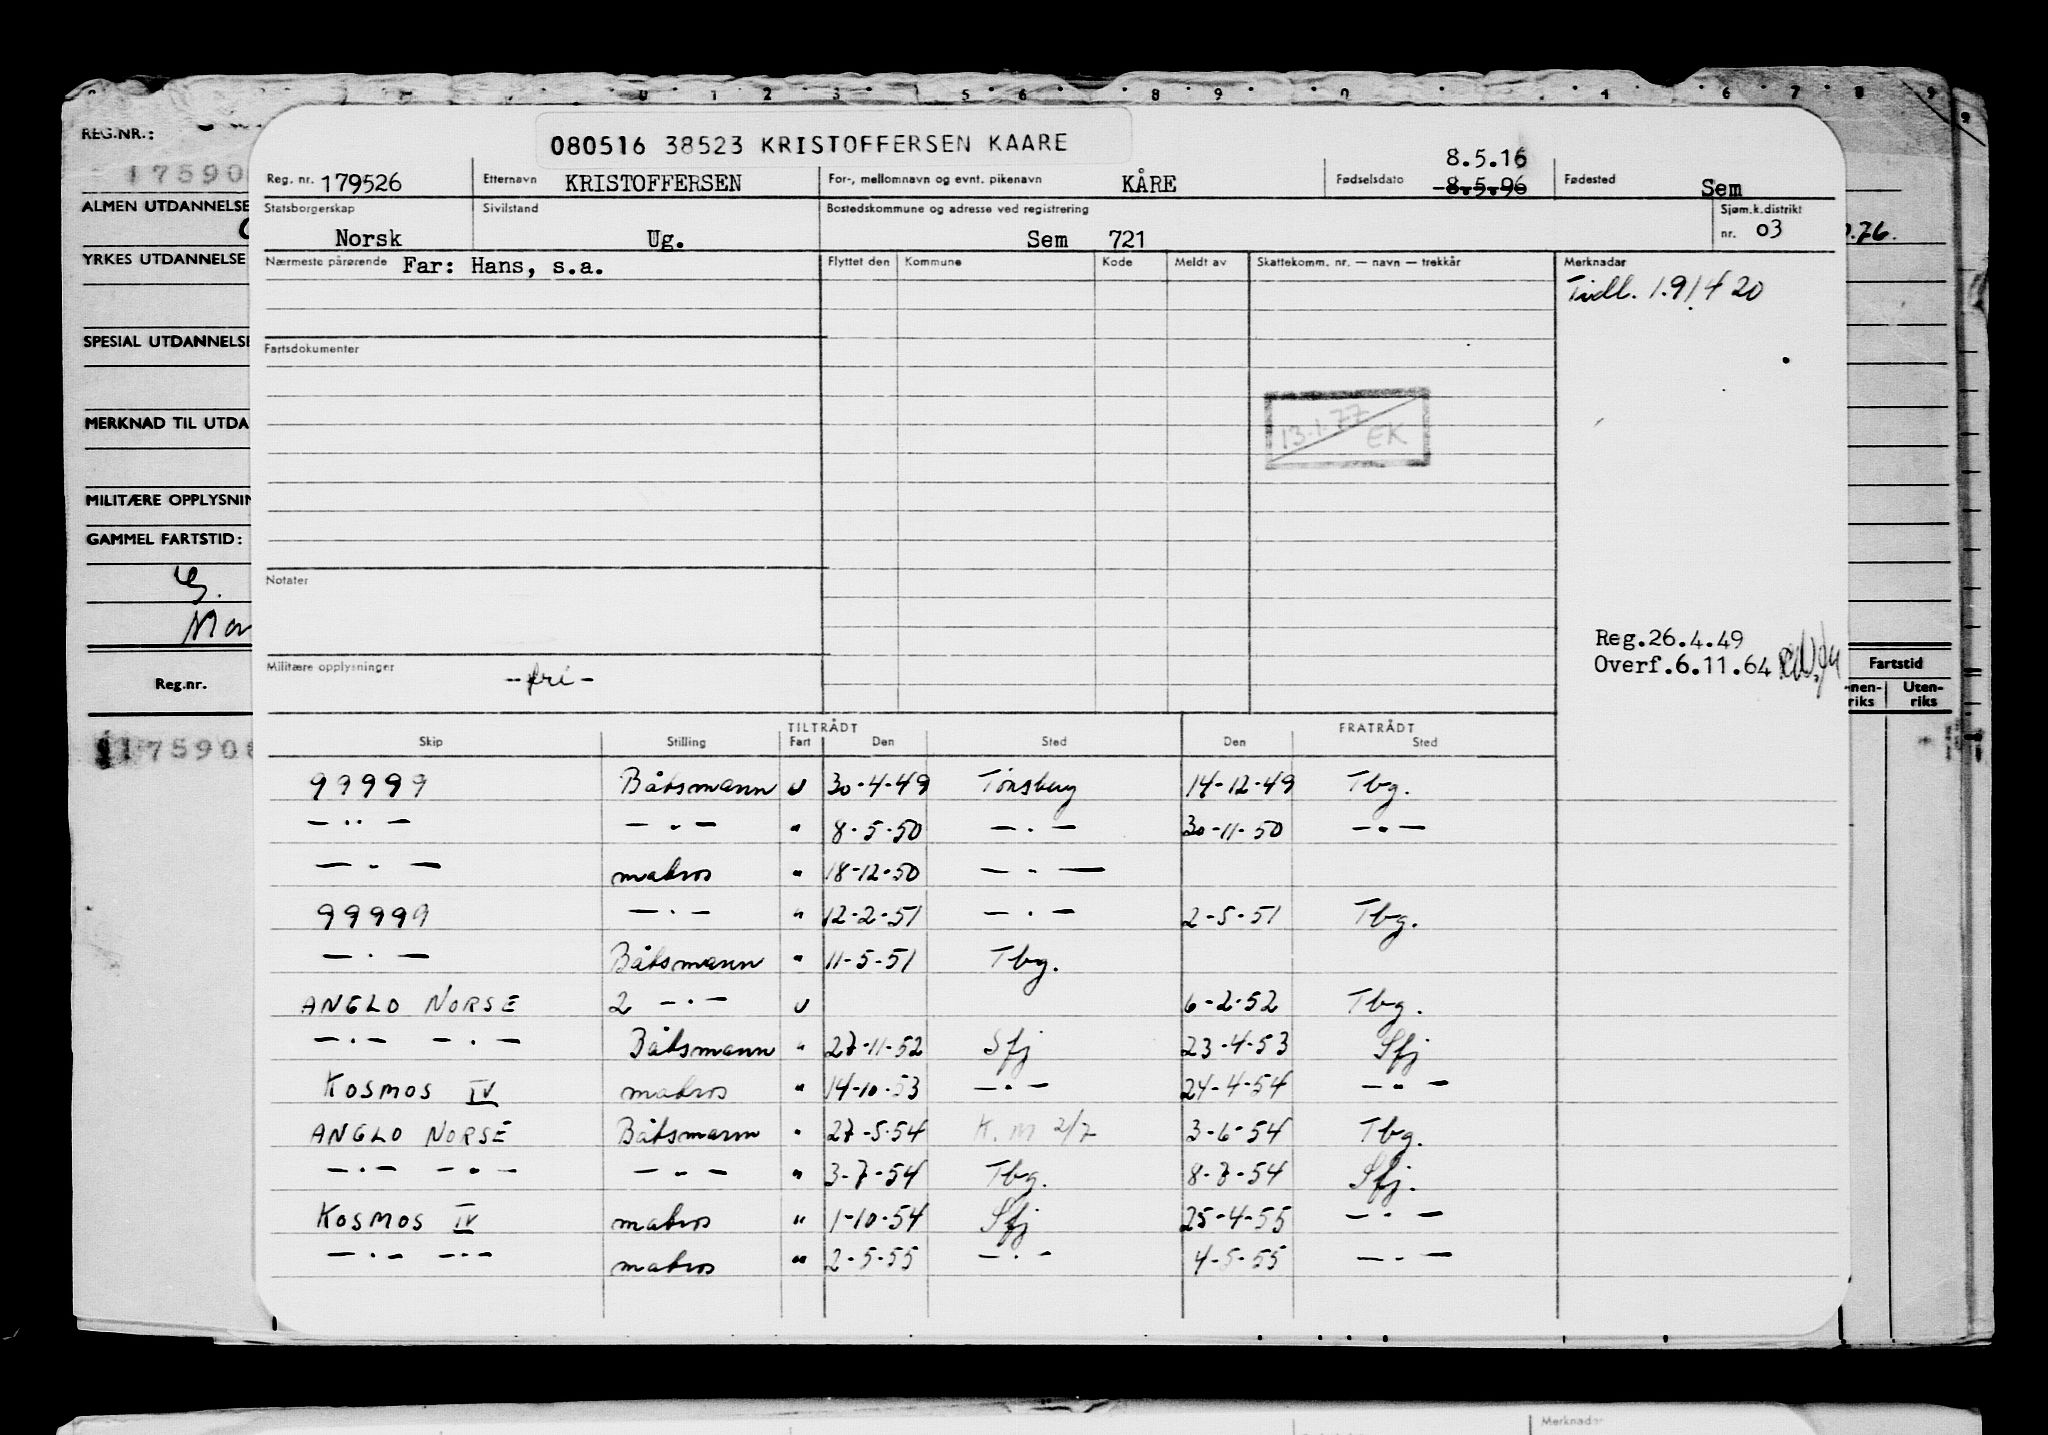 REG.NR.:
080516 38523 KRISTOFFERSEN KAARE
Reg. nr. 179526 Etternavn KRISTOFFERSEN For-, mellomnavn og evnt. pikenavn KÅRE Fødselsdato 8.5.16 8.5.96 Fødested Sem
Statsborgerskap Norsk Sivilstand Ug. Bostedskommune og adresse ved registrering Sem 721 Sjøm.k.distrikt nr. 03
Nærmeste pårørende Far: Hans, s.a. Flyttet den Kommune Kode Meldt av Skattekomm. nr. — navn — trekkår Merknadar
Tidl. 1.914 20
Fartsdokumenter
13-1-77 EK
Notater
Reg.26.4.49
Overf.6.11.64
Militære opplysninger - fri -
TILTRÅDT FRATRÅDT
Skip Stilling Fart Den Sted Den Sted
99999 Båtsmann u 30-4-49 Tønsberg 14-12-49 Tbg.
— ·· — — · — " 8-5-50 — · — 30-11-50 — · —
— · — matros " 18-12-50 — · —
99999 — · — " 12-2-51 — · — 2-5-51 Tbg.
— · — Båtsmann " 11-5-51 Tbg.
ANGLO NORSE 2 — · — u 6-2-52 Tbg.
— · — — · — Båtsmann " 27-11-52 Sfj 23-4-53 Sfj
KOSMOS IV matros " 14-10-53 — · — 24-4-54 — · —
ANGLO NORSE Båtsmann " 27-5-54 K. M 2/7 3-6-54 Tbg.
— · — — · — — · — " 3-7-54 Tbg. 8-7-54 Sfj.
KOSMOS IV matros " 1-10-54 Sfj 25-4-55 — · —
— · — — · — matros " 2-5-55 — · — 4-5-55 — · —
17590
ALMEN UTDANNELSE
YRKES UTDANNELSE
SPESIAL UTDANNELSE
MERKNAD TIL UTDA
MILITÆRE OPPLYSNIN
GAMMEL FARTSTID:
Reg.nr.
175908
.76.
Fartstid
nen-riks Uten-riks
Merknadar